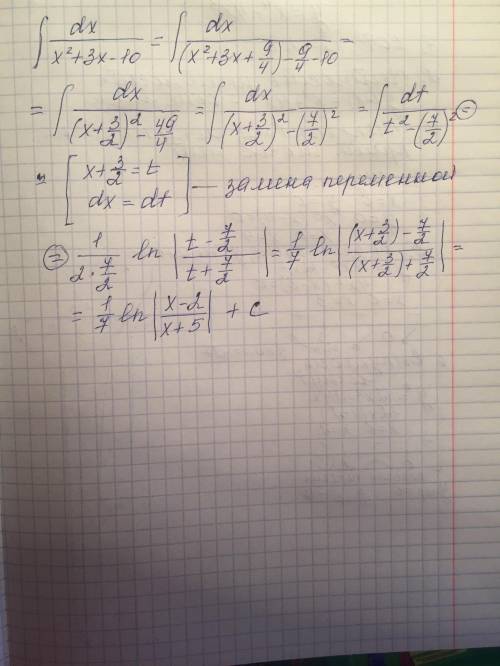 ∫ dx/(x²+3x-10) = ∫ dx/((x²+3x+9/4)-9/4-10) =
= ∫ dx/((x+3/2)²-49/4) = ∫ dx/((x+3/2)²-(7/2)²) = ∫ dt/(t²-(7/2)²) ⊜
[x+3/2=t
dx=dt] — замена переменной
⊜ 1/(2·7/2) ln |(t-7/2)/(t+7/2)| = 1/7 ln |((x+3/2)-7/2)/((x+3/2)+7/2)| =
= 1/7 ln |(x-2)/(x+5)| + C